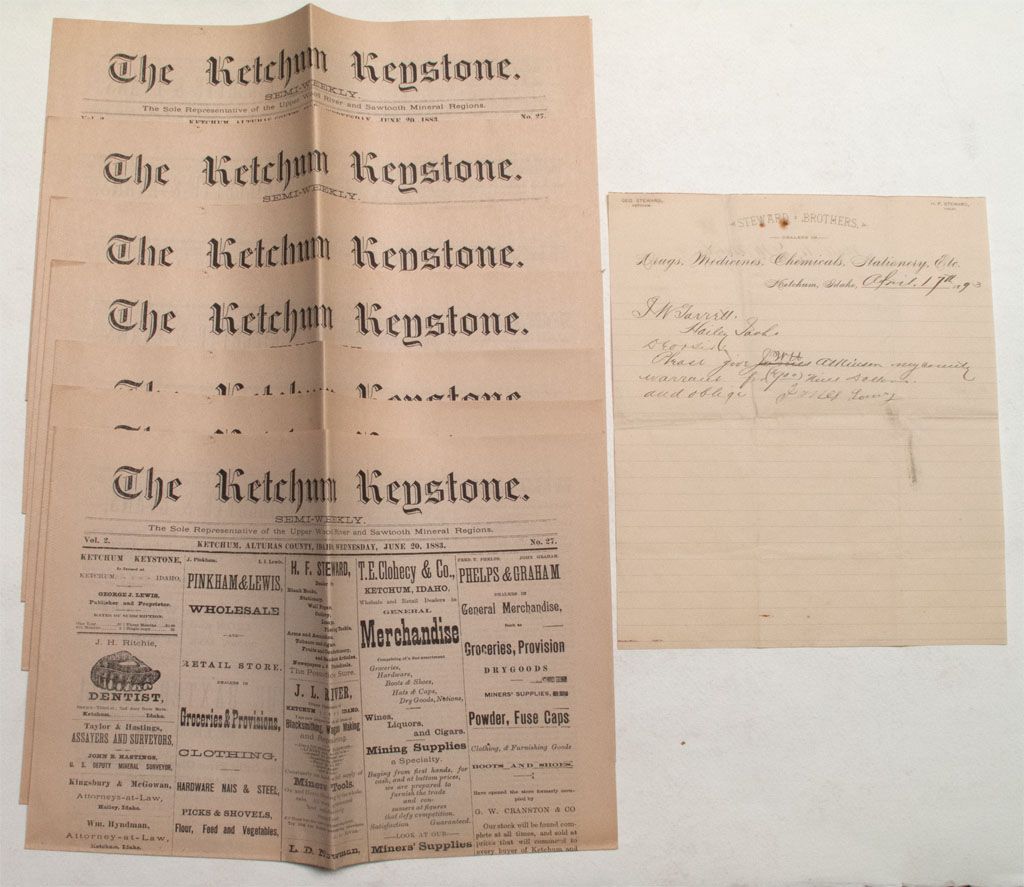 The Ketchum Keystone.
SEMI-WEEKLY.
The Sole Representative of the Upper Wood River and Sawtooth Mineral Regions.
Vol. 2. KETCHUM, ALTURAS COUNTY, WEDNESDAY, JUNE 20, 1883. No. 27.
The Ketchum Keystone.
SEMI-WEEKLY.
The Ketchum Keystone.
The Ketchum Keystone.
The Ketchum Keystone.
SEMI-WEEKLY.
The Sole Representative of the Upper Wood River and Sawtooth Mineral Regions.
Vol. 2. KETCHUM, ALTURAS COUNTY, IDAHO, WEDNESDAY, JUNE 20, 1883. No. 27.
KETCHUM KEYSTONE,
KETCHUM, IDAHO,
GEORGE J. LEWIS,
Publisher and Proprietor.
RATES OF SUBSCRIPTION.
J. H. Ritchie,
DENTIST,
Ketchum, Idaho.
Taylor & Hastings,
ASSAYERS AND SURVEYORS,
JOHN B. HASTINGS,
U. S. DEPUTY MINERAL SURVEYOR,
Kingsbury & McGowan,
Attorneys-at-Law,
Hailey, Idaho.
Wm. Hyndman,
Attorney-at-Law,
Ketchum, Idaho.
J. Pinkham. I. I. Lewis.
PINKHAM & LEWIS,
WHOLESALE
—AND—
RETAIL STORE.
DEALERS IN
Groceries & Provisions,
CLOTHING,
HARDWARE NAIS & STEEL,
PICKS & SHOVELS,
Flour, Feed and Vegetables,
H. F. STEWARD,
Dealer in
Blank Books,
Stationery,
Wall Paper,
Cutlery,
Fishing Tackle,
Arms and Ammunition,
J. L. RIVER,
KETCHUM, IDAHO,
Blacksmithing, Wagon Making,
Miners' Tools.
L. D. Newman,
T. E. Clohecy & Co.,
KETCHUM, IDAHO.
Wholesale and Retail Dealers in
GENERAL
Merchandise
Comprising of a fine assortment
Groceries,
Hardware,
Boots & Shoes,
Hats & Caps,
Dry Goods, Notions,
Wines,
Liquors,
and Cigars.
Mining Supplies
a Specialty.
Buying from first hands, for
cash, and at bottom prices,
we are prepared to
furnish the trade
and con-
sumers at figures
that defy competition.
Satisfaction Guaranteed.
—LOOK AT OUR—
Miners' Supplies
FRED T. PHELPS. JOHN GRAHAM.
PHELPS & GRAHAM
DEALERS IN
General Merchandise,
Such as
Groceries, Provision
DRYGOODS
MINERS' SUPPLIES,
Powder, Fuse Caps
Clothing, & Furnishing Goods
BOOTS AND SHOES.
Have opened the store formerly occu-
pied by
G. W. CRANSTON & CO
Our stock will be found com-
plete at all times, and sold at
prices that will commend to
every buyer of Ketchum and
GEO. STEWARD, H. F. STEWARD,
STEWARD BROTHERS,
DEALERS IN
Drugs, Medicines, Chemicals, Stationery, Etc.
Ketchum, Idaho, April 17th 1893
Hailey Idaho
Please give Atkinson my county
warrant for
and oblige